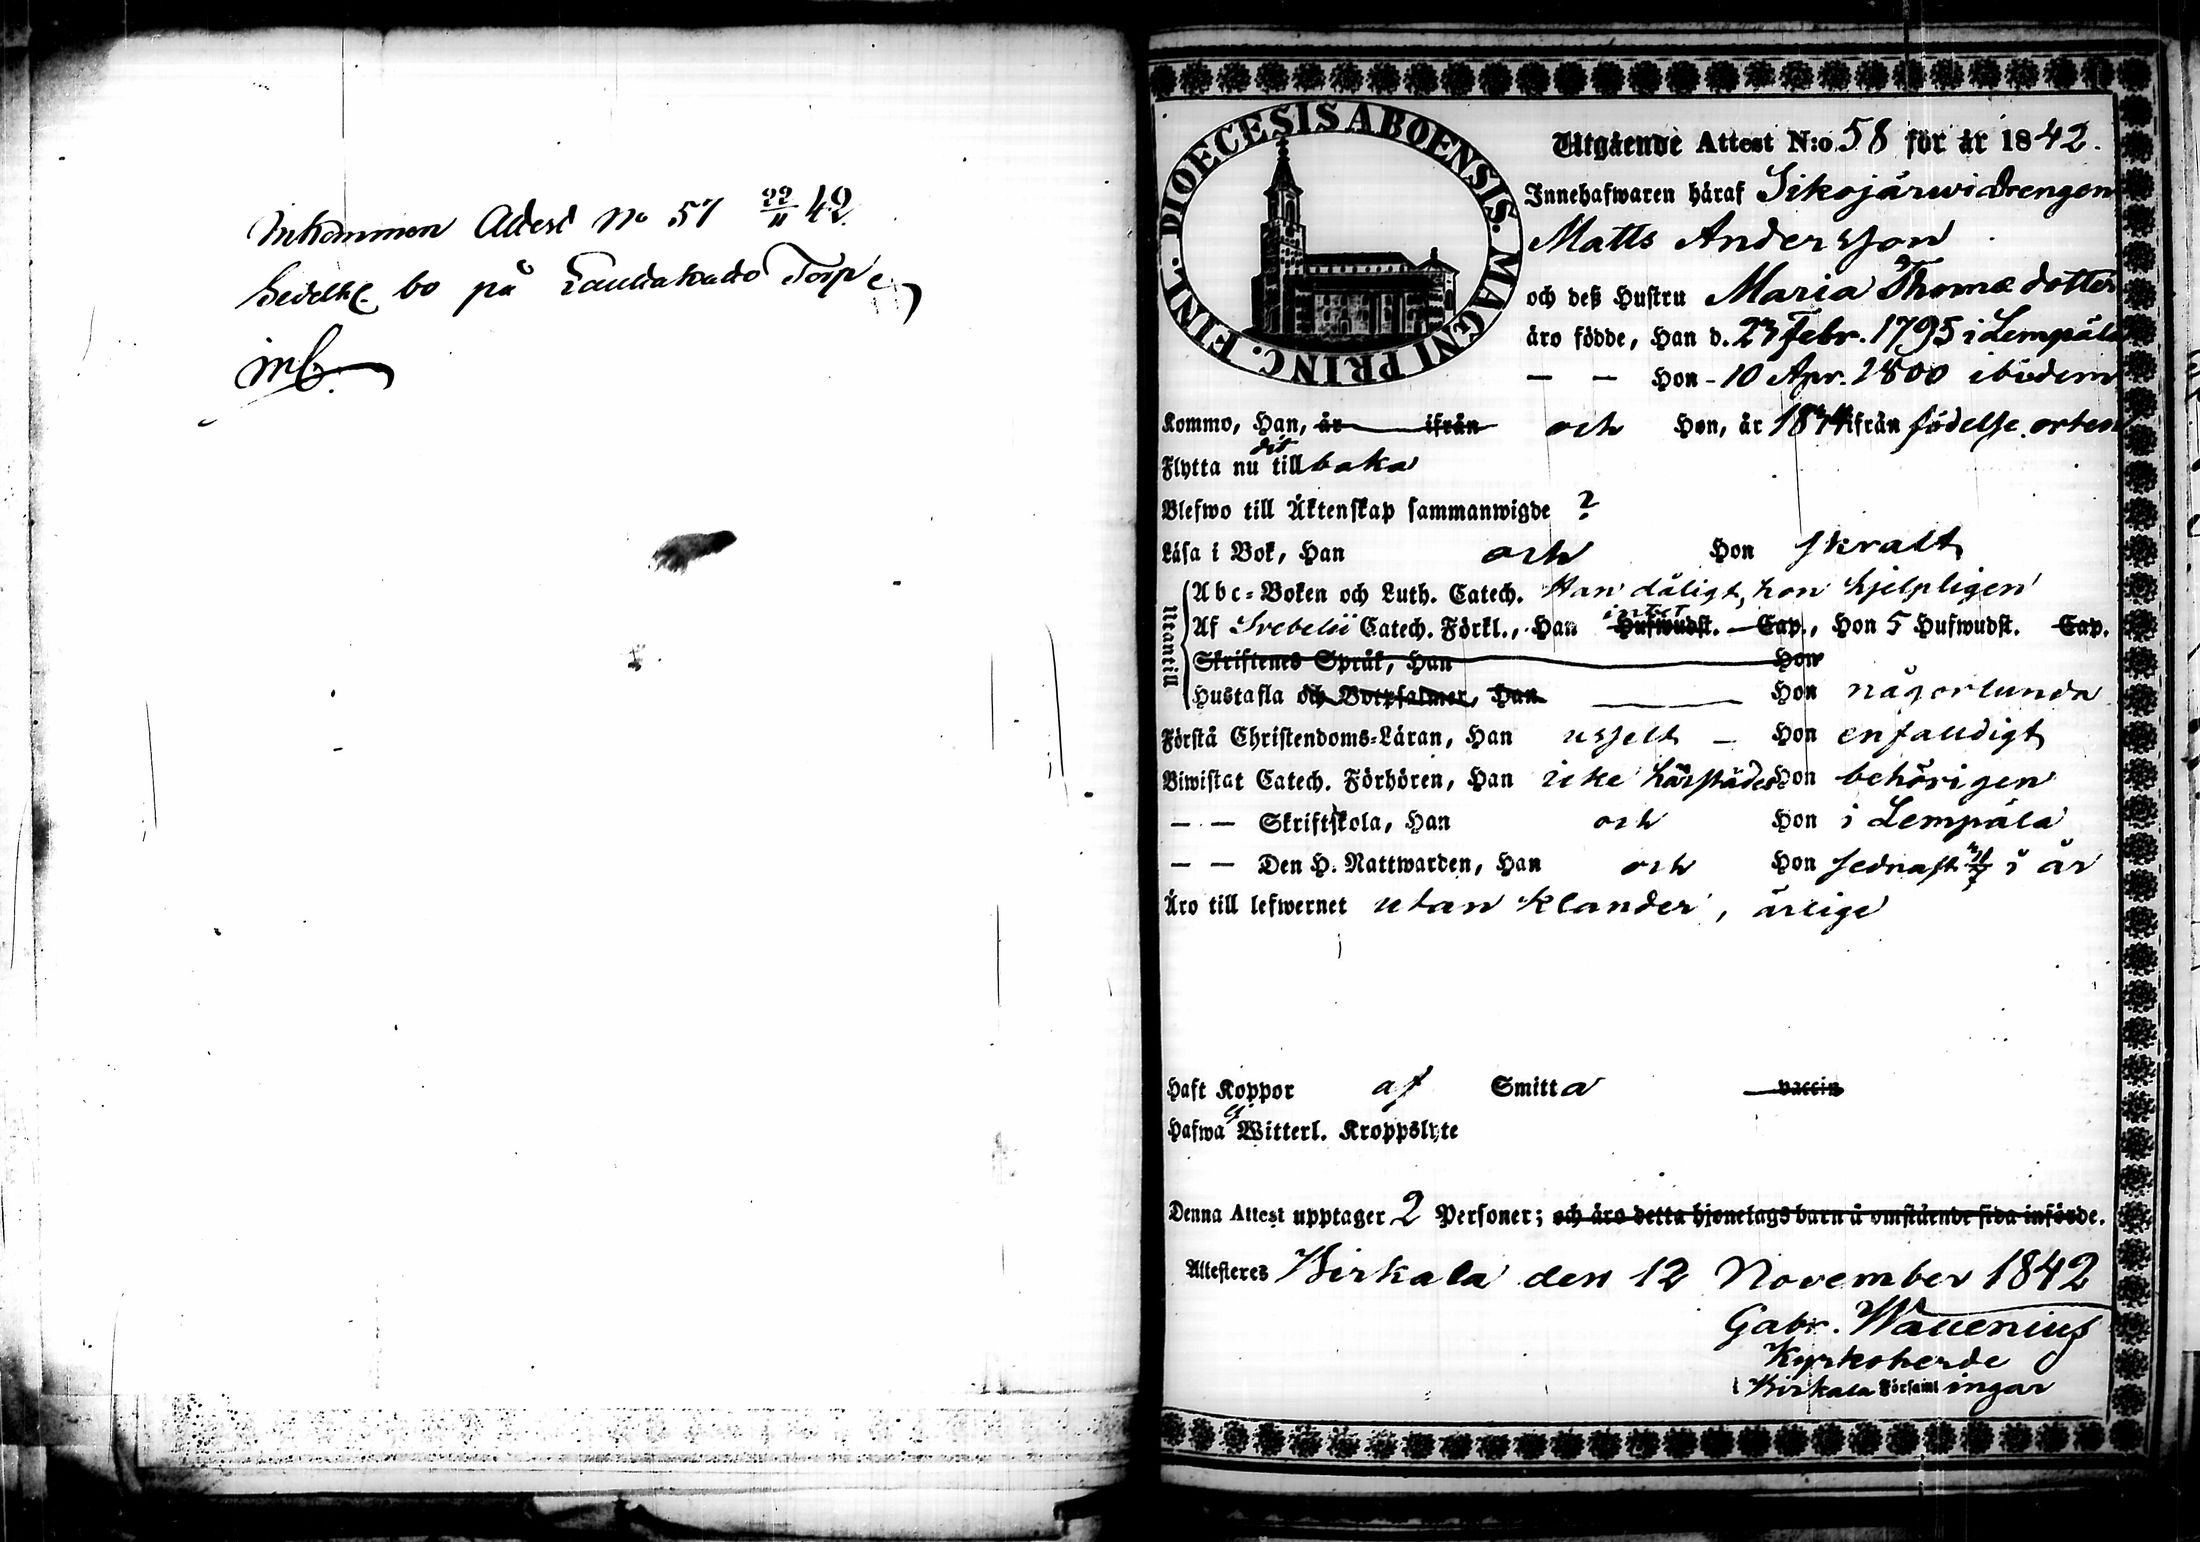 Inkommen Attest No 57 22/11 42.
bo på Torp
DIOECESIS ABOENSIS. MAGNI PRINC. FINL.
Utgående Attest N:o 58 för år 1842.
Innehafwaren häraf Sikojärwi drengen
Matts Andersson
och deß Hustru Maria Thomæ dotter
äro födde, Han d. 27 Febr. 1795 i Lempäla
— — Hon - 10 Apr. 1800 ibidem
Kommo, Han, år ifrån och Hon, år ifrån födelse orten
Flytta nu dit tillbaka
Blefwo till Äktenskap sammanwigde ?
Läsa i Bok, Han och Hon skralt
Utantill
Abc-Boken och Luth. Catech. Han dåligt, hon hjelpligen
Af Svebelii Catech. Förkl., Han intet Hufwudst. Cap., Hon 5 Hufwudst. Cap.
Skriftenes Språk, Han Hon
Hustafla och Botpsalmer, Han — Hon någorlunda
Förstå Christendoms-Läran, Han uselt — Hon enfaldigt
Biwistat Catech. Förhören, Han icke härstädes Hon behörigen
— — Skriftskola, Han och Hon i Lempäla
— — Den H. Nattwarden, Han och Hon sednast i år
Äro till lefwernet utan klander, ärlige
Haft Koppor af Smitta vaccin
Hafwa ej Witterl. Kroppslyte
Denna Attest upptager 2 Personer; och äro detta hjonelags barn å omstående sida införde.
Attesteres Birkala den 12 November 1842
Gabr. Wallenius
Kyrkoherde
i Birkala Församl ingar